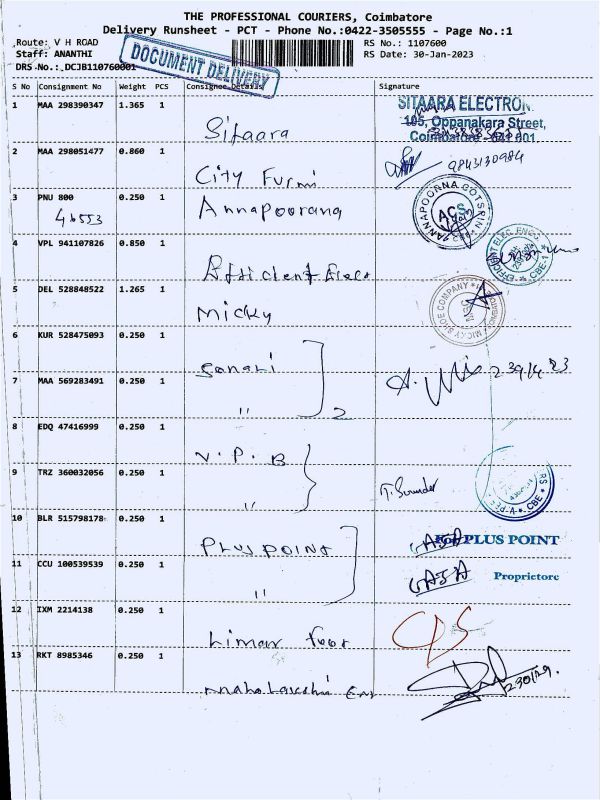 THE PROFESSIONAL COURIERS, Coimbatore
Delivery Runsheet - PCT - Phone No.:0422-3505555 - Page No.:1
Route: V H ROAD
Staff: ANANTHI
DRS No.: DCJB110760001
DOCUMENT DELIVERY
RS No.: 1107600
RS Date: 30-Jan-2023
S No Consignment No Weight PCS Consignee Details Signature
1 MAA 298390347 1.365 1
Sitaara
SITAARA ELECTRON
105, Oppanakara Street,
Coimbatore - 641 001.
2 MAA 298051477 0.860 1
City Furni
9843130984
3 PNU 800 0.250 1
46553
Annapoorana
ANNAPOORNA
ACS
4 VPL 941107826 0.850 1
Efficient Elect
EFFICIENT ELEC. ENGG.
CBE-1
5 DEL 528848522 1.265 1
Micky
MICKY SHOE COMPANY
6 KUR 528475093 0.250 1
Sanghi
7 MAA 569283491 0.250 1
" 2
8 EDQ 47416999 0.250 1
V.P.B
9 TRZ 360032056 0.250 1
"
T. Sounder
CBE
10 BLR 515798178 0.250 1
PLUS POINT
For PLUS POINT
11 CCU 100539539 0.250 1
"
GAJA
Proprietore
12 IXM 2214138 0.250 1
Limar Foot
13 RKT 8985346 0.250 1
Mahalakshmi En